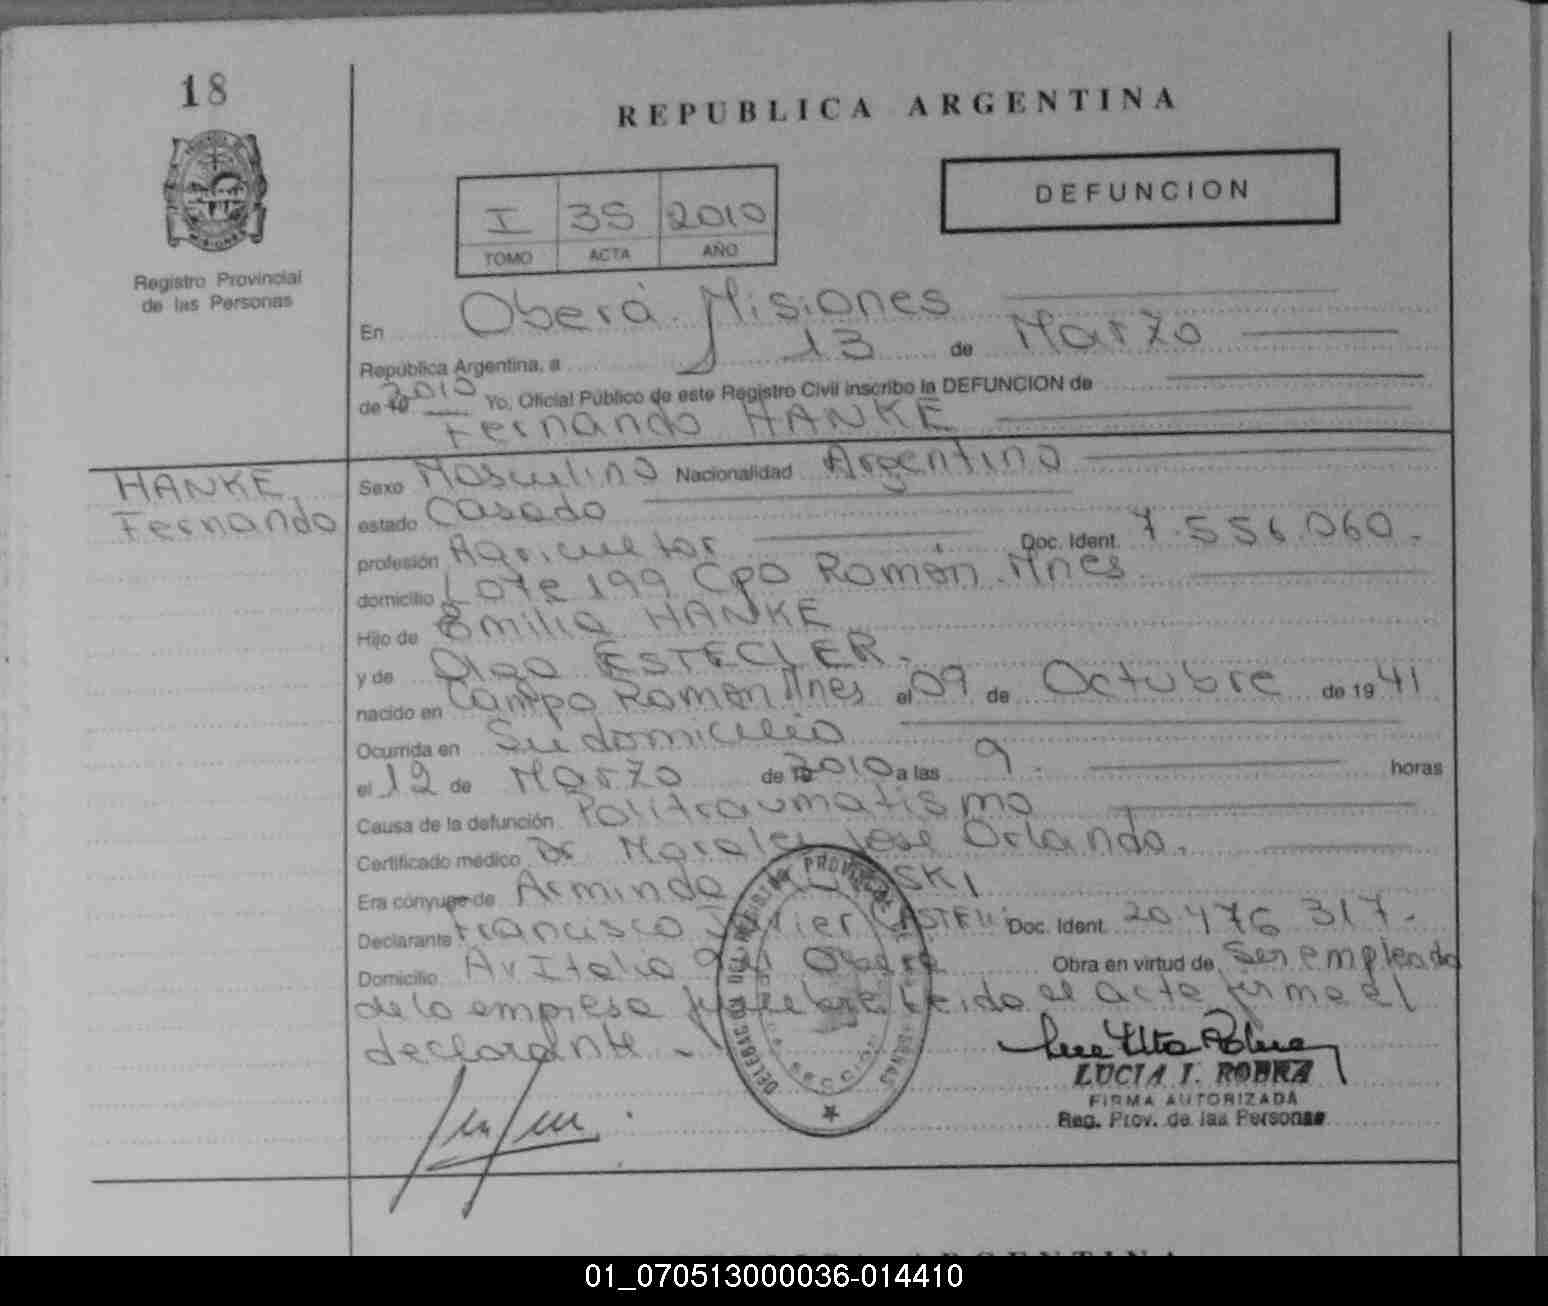 18
REPUBLICA ARGENTINA
Registro Provincial
de las Personas
DEFUNCION
I 35 2010
TOMO ACTA AÑO
En Oberá Misiones
República Argentina, a 13 de Marzo
de 19 2010 Yo, Oficial Público de este Registro Civil inscribo la DEFUNCION de
Fernando HANKE
HANKE,
Fernando
Sexo Masculino Nacionalidad Argentino
estado Casado
profesión Agricultor Doc. Ident. 7.556.060.
domicilio Lote 199 Cpo Ramón Mnes
Hijo de Emilio HANKE
y de Olga ESTECLER.
nacido en Campo Ramón Mnes el 09 de Octubre de 19 41
Ocurrida en Su domicilio
el 12 de Marzo de 19 2010 a las 9. horas
Causa de la defunción Politraumatismo
Certificado médico Dr Morales Jose Orlando.
Era cónyuge de Arminda SKI
Declarante Francisco Doc. Ident. 20.476 317.
Domicilio Av Italia Obra en virtud de Ser empleado
de la empresa leida el acta firma el
declarante.
DELEGACION DEL REGISTRO PROVINCIAL DE LAS
LUCIA I. ROBRA
FIRMA AUTORIZADA
Reg. Prov. de las Personas
REPUBLICA ARGENTINA
01_070513000036-014410